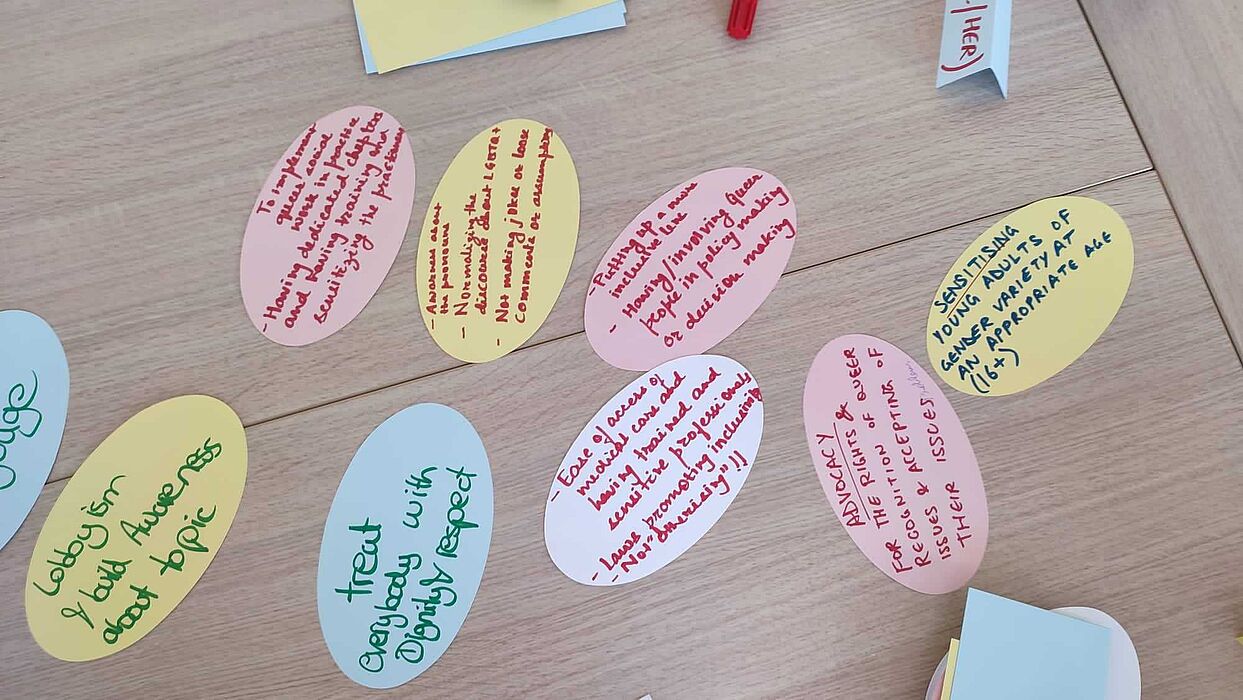 -/HER)
To implement
queer social
work in practice
- Having dedicated chapters
and having training and
sensitizing the practitioner
- Awareness about
the pronouns
- Normalizing the
discourse about LGBTQ+
- Not making jokes or loose
comments or assumption
- Putting up a more
inclusive law
- Having/involving queer
people in policy making
or decision making
SENSITISING
YOUNG ADULTS OF
GENDER VARIETY AT
AN APPROPRIATE AGE
(16+)
Lobbyism
& build Awareness
about topic
treat
everybody with
Dignity & respect
- Ease of access of
medical care and
having trained and
sensitive professionals
- Laws promoting inclusivity
- Not "Omenising"!!
ADVOCACY
FOR THE RIGHTS &
RECOGNITION OF QUEER
ISSUES & ACCEPTING
THEIR ISSUES